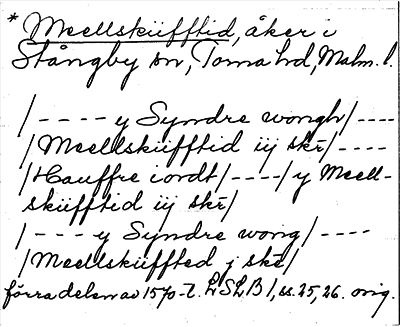 * Meellskiifftid, åker i
Stångby sn, Torna hd, Malm. l.
/---- y Syndre wongh/----
/Meellskiifftid iij skē/----
/Hauffre iordt/----/y Meell-
skiifftid iij skē/
/---- y Syndre wong/----
/Meellskiiffted j skē/
förra delen av 1570-t. LSLB 1, ss. 25, 26. orig.